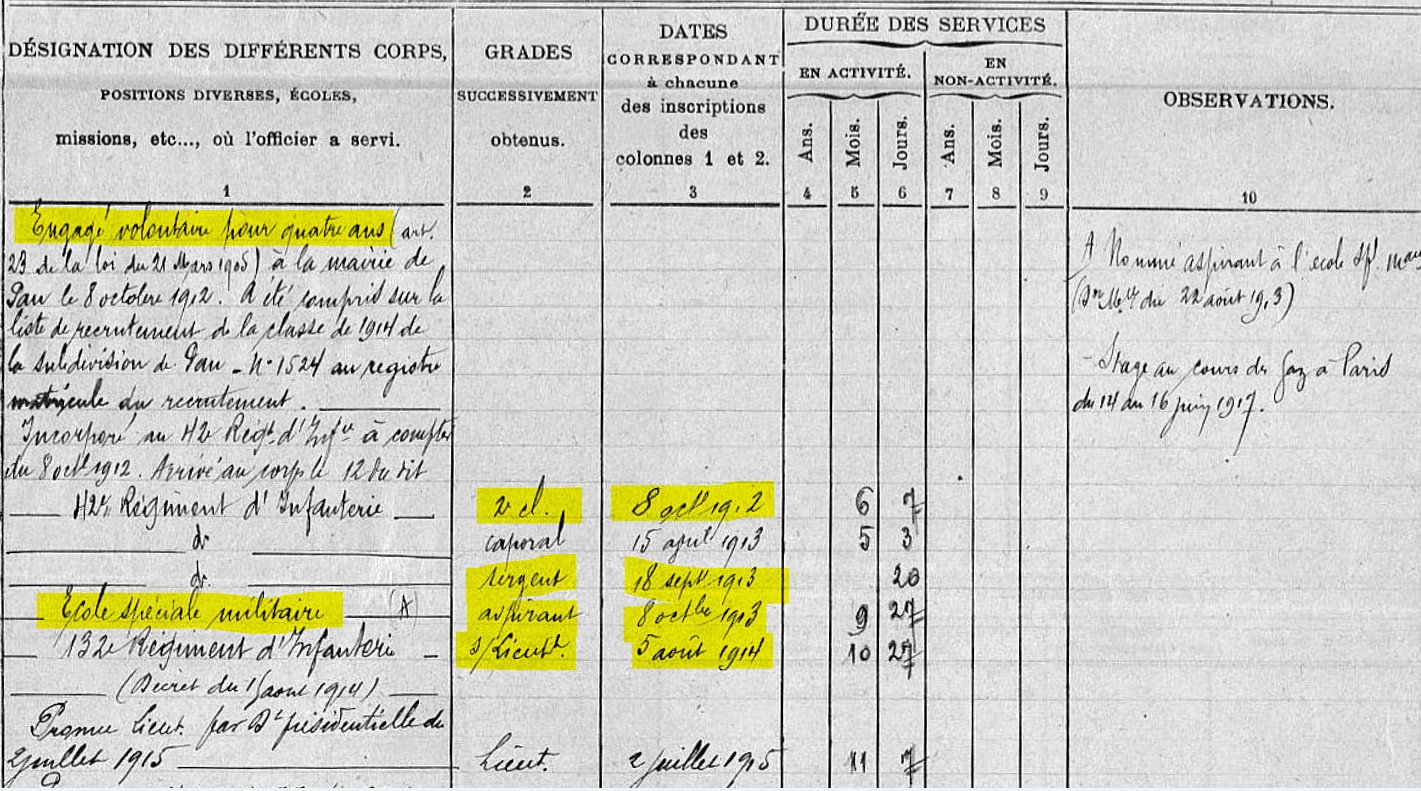 DÉSIGNATION DES DIFFÉRENTS CORPS,
POSITIONS DIVERSES, ÉCOLES,
missions, etc..., où l'officier a servi.
1
GRADES
SUCCESSIVEMENT
obtenus.
2
DATES
CORRESPONDANT
à chacune
des inscriptions
des
colonnes 1 et 2.
3
DURÉE DES SERVICES
EN ACTIVITÉ.
EN
NON-ACTIVITÉ.
Ans. Mois. Jours. Ans. Mois. Jours.
4 5 6 7 8 9
OBSERVATIONS.
10
Engagé volontaire pour quatre ans (art.
23 de la loi du 21 Mars 1905) à la mairie de
Pau le 8 octobre 1912. A été compris sur la
liste de recrutement de la classe de 1914 de
la subdivision de Pau - No 1524 au registre
matricule du recrutement.
Incorporé au 42e Regt d'Infie à compter
du 8 octe 1912. Arrivé au corps le 12 du dit
42e Régiment d'Infanterie 2e cl. 8 oct 1912 6 7
do caporal 15 avril 1913 5 3
do sergent 18 sept 1913 20
Ecole spéciale militaire (A) aspirant 8 octbre 1913 9 27
132e Régiment d'Infanterie s/Lieutt. 5 août 1914 10 27
(Décret du août 1914)
Promu Lieut. par Dt présidentielle du
2 juillet 1915 Lieut. 2 juillet 1915 11 7
A Nommé aspirant à l'école
(Don Mlle du 22 août 1913)
- Stage au cours de Gaz à Paris
du 14 au 16 juin 1917.